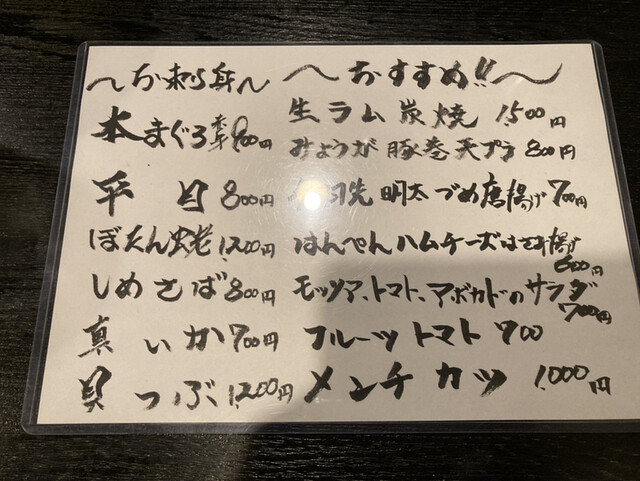 〜お刺身〜
本まぐろ 赤身 900円
平目 800円
ぼたん海老 1,200円
しめさば 800円
真いか 700円
貝つぶ 1,200円
〜おすすめ!!〜
生ラム炭焼 1,500円
みょうが豚巻天プラ 800円
羽先明太づめ唐揚げ 700円
はんぺんハムチーズはさみ揚げ 600円
モッツァ、トマト、アボカドのサラダ 700円
フルーツトマト 700
メンチカツ 1,000円